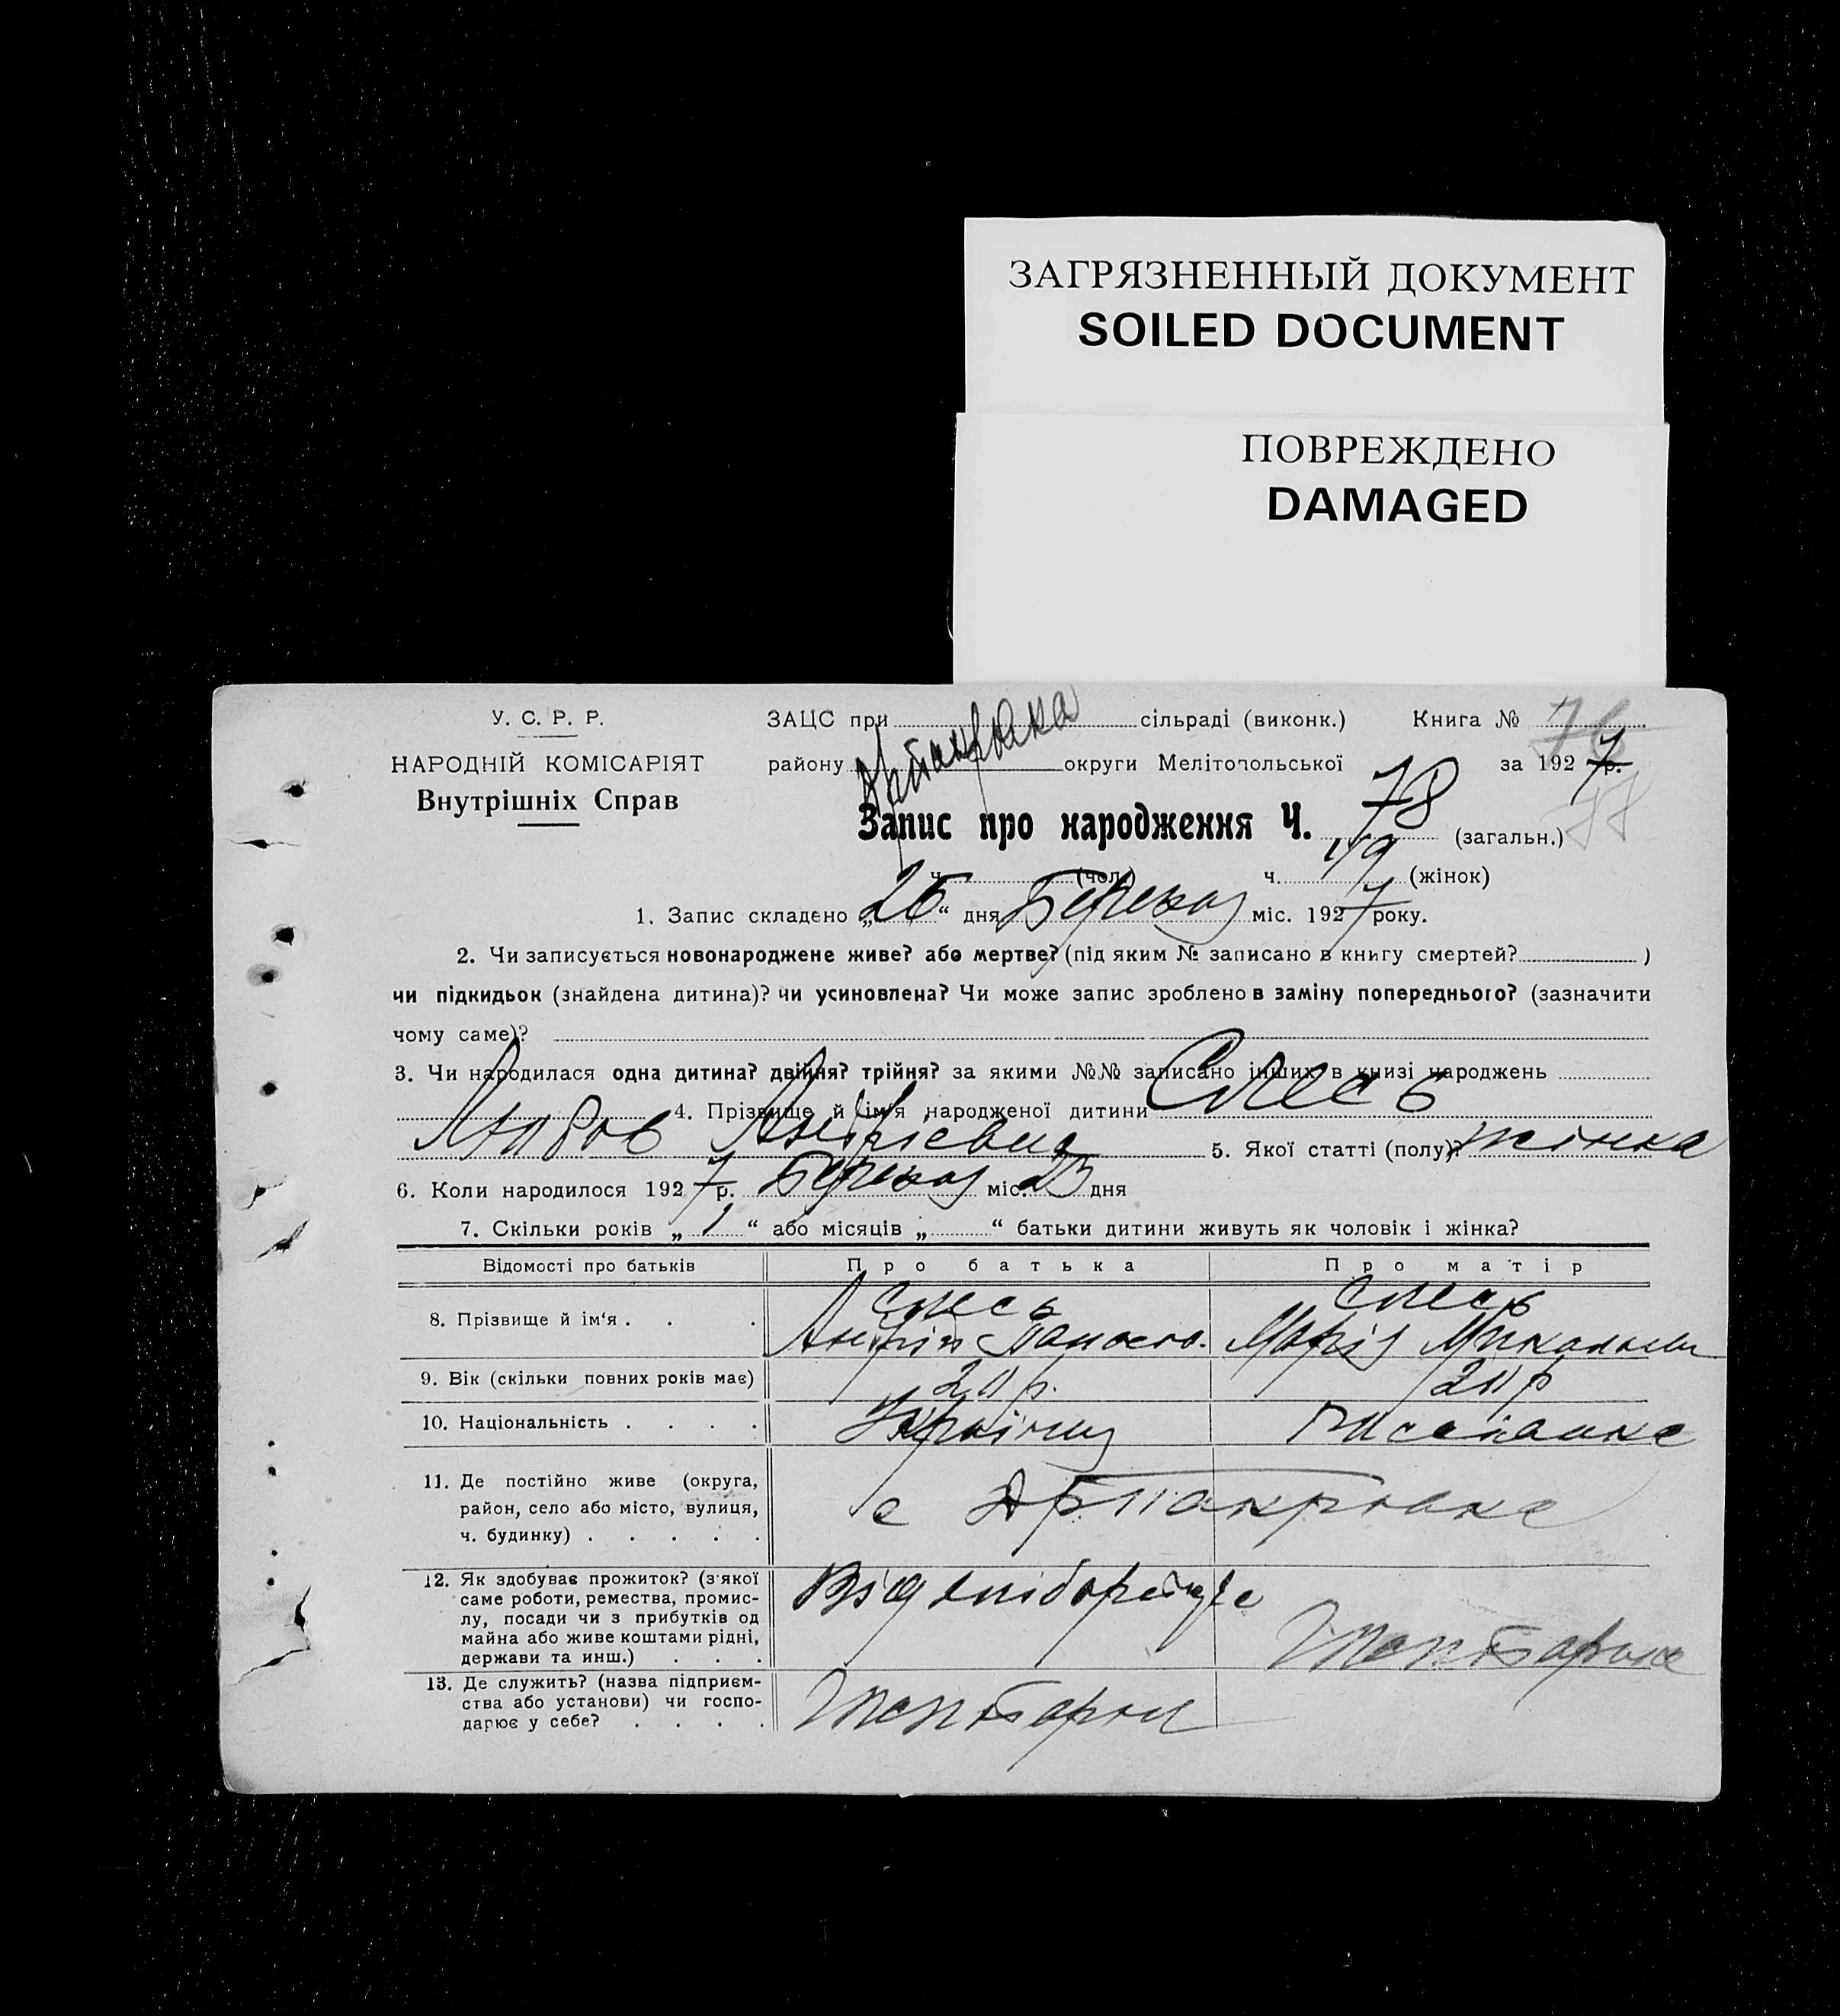 ЗАГРЯЗНЕННЫЙ ДОКУМЕНТ
SOILED DOCUMENT
ПОВРЕЖДЕНО
DAMAGED
У. С. Р. Р.
НАРОДНІЙ КОМІСАРІЯТ
Внутрішніх Справ
ЗАЦС при сільраді (виконк.) Книга № 76
району округи Мелітопольської за 1927 р.
Запис про народження Ч. 78 (загальн.) 77
ч. (чол.) ч. (жінок)
1. Запис складено „26“ дня Березня міс. 1927 року.
2. Чи записується новонароджене живе? або мертве? (під яким № записано в книгу смертей? )
чи підкидьок (знайдена дитина)? чи усиновлена? Чи може запис зроблено в заміну попереднього? (зазначити
чому саме)?
3. Чи народилася одна дитина? двійня? трійня? за якими №№ записано інших в книзі народжень
4. Прізвище й ім'я народженої дитини
Андріевна 5. Якої статті (полу)? жінка
6. Коли народилося 1927 р. Березня міс. 25 дня
7. Скільки років „1“ або місяців „ “ батьки дитини живуть як чоловік і жінка?
Відомості про батьків Про батька Про матір
8. Прізвище й ім'я . . .
Андрій Марія
9. Вік (скільки повних років має) 20 р. 20 р
10. Національність . . . . Українец
11. Де постійно живе (округа,
район, село або місто, вулиця,
ч. будинку) . . . . .
с
12. Як здобуває прожиток? (з якої
саме роботи, ремества, промис-
лу, посади чи з прибутків од
майна або живе коштами рідні,
держави та инш.) . . .
13. Де служить? (назва підприєм-
ства або установи) чи госпо-
дарює у себе? . . . .